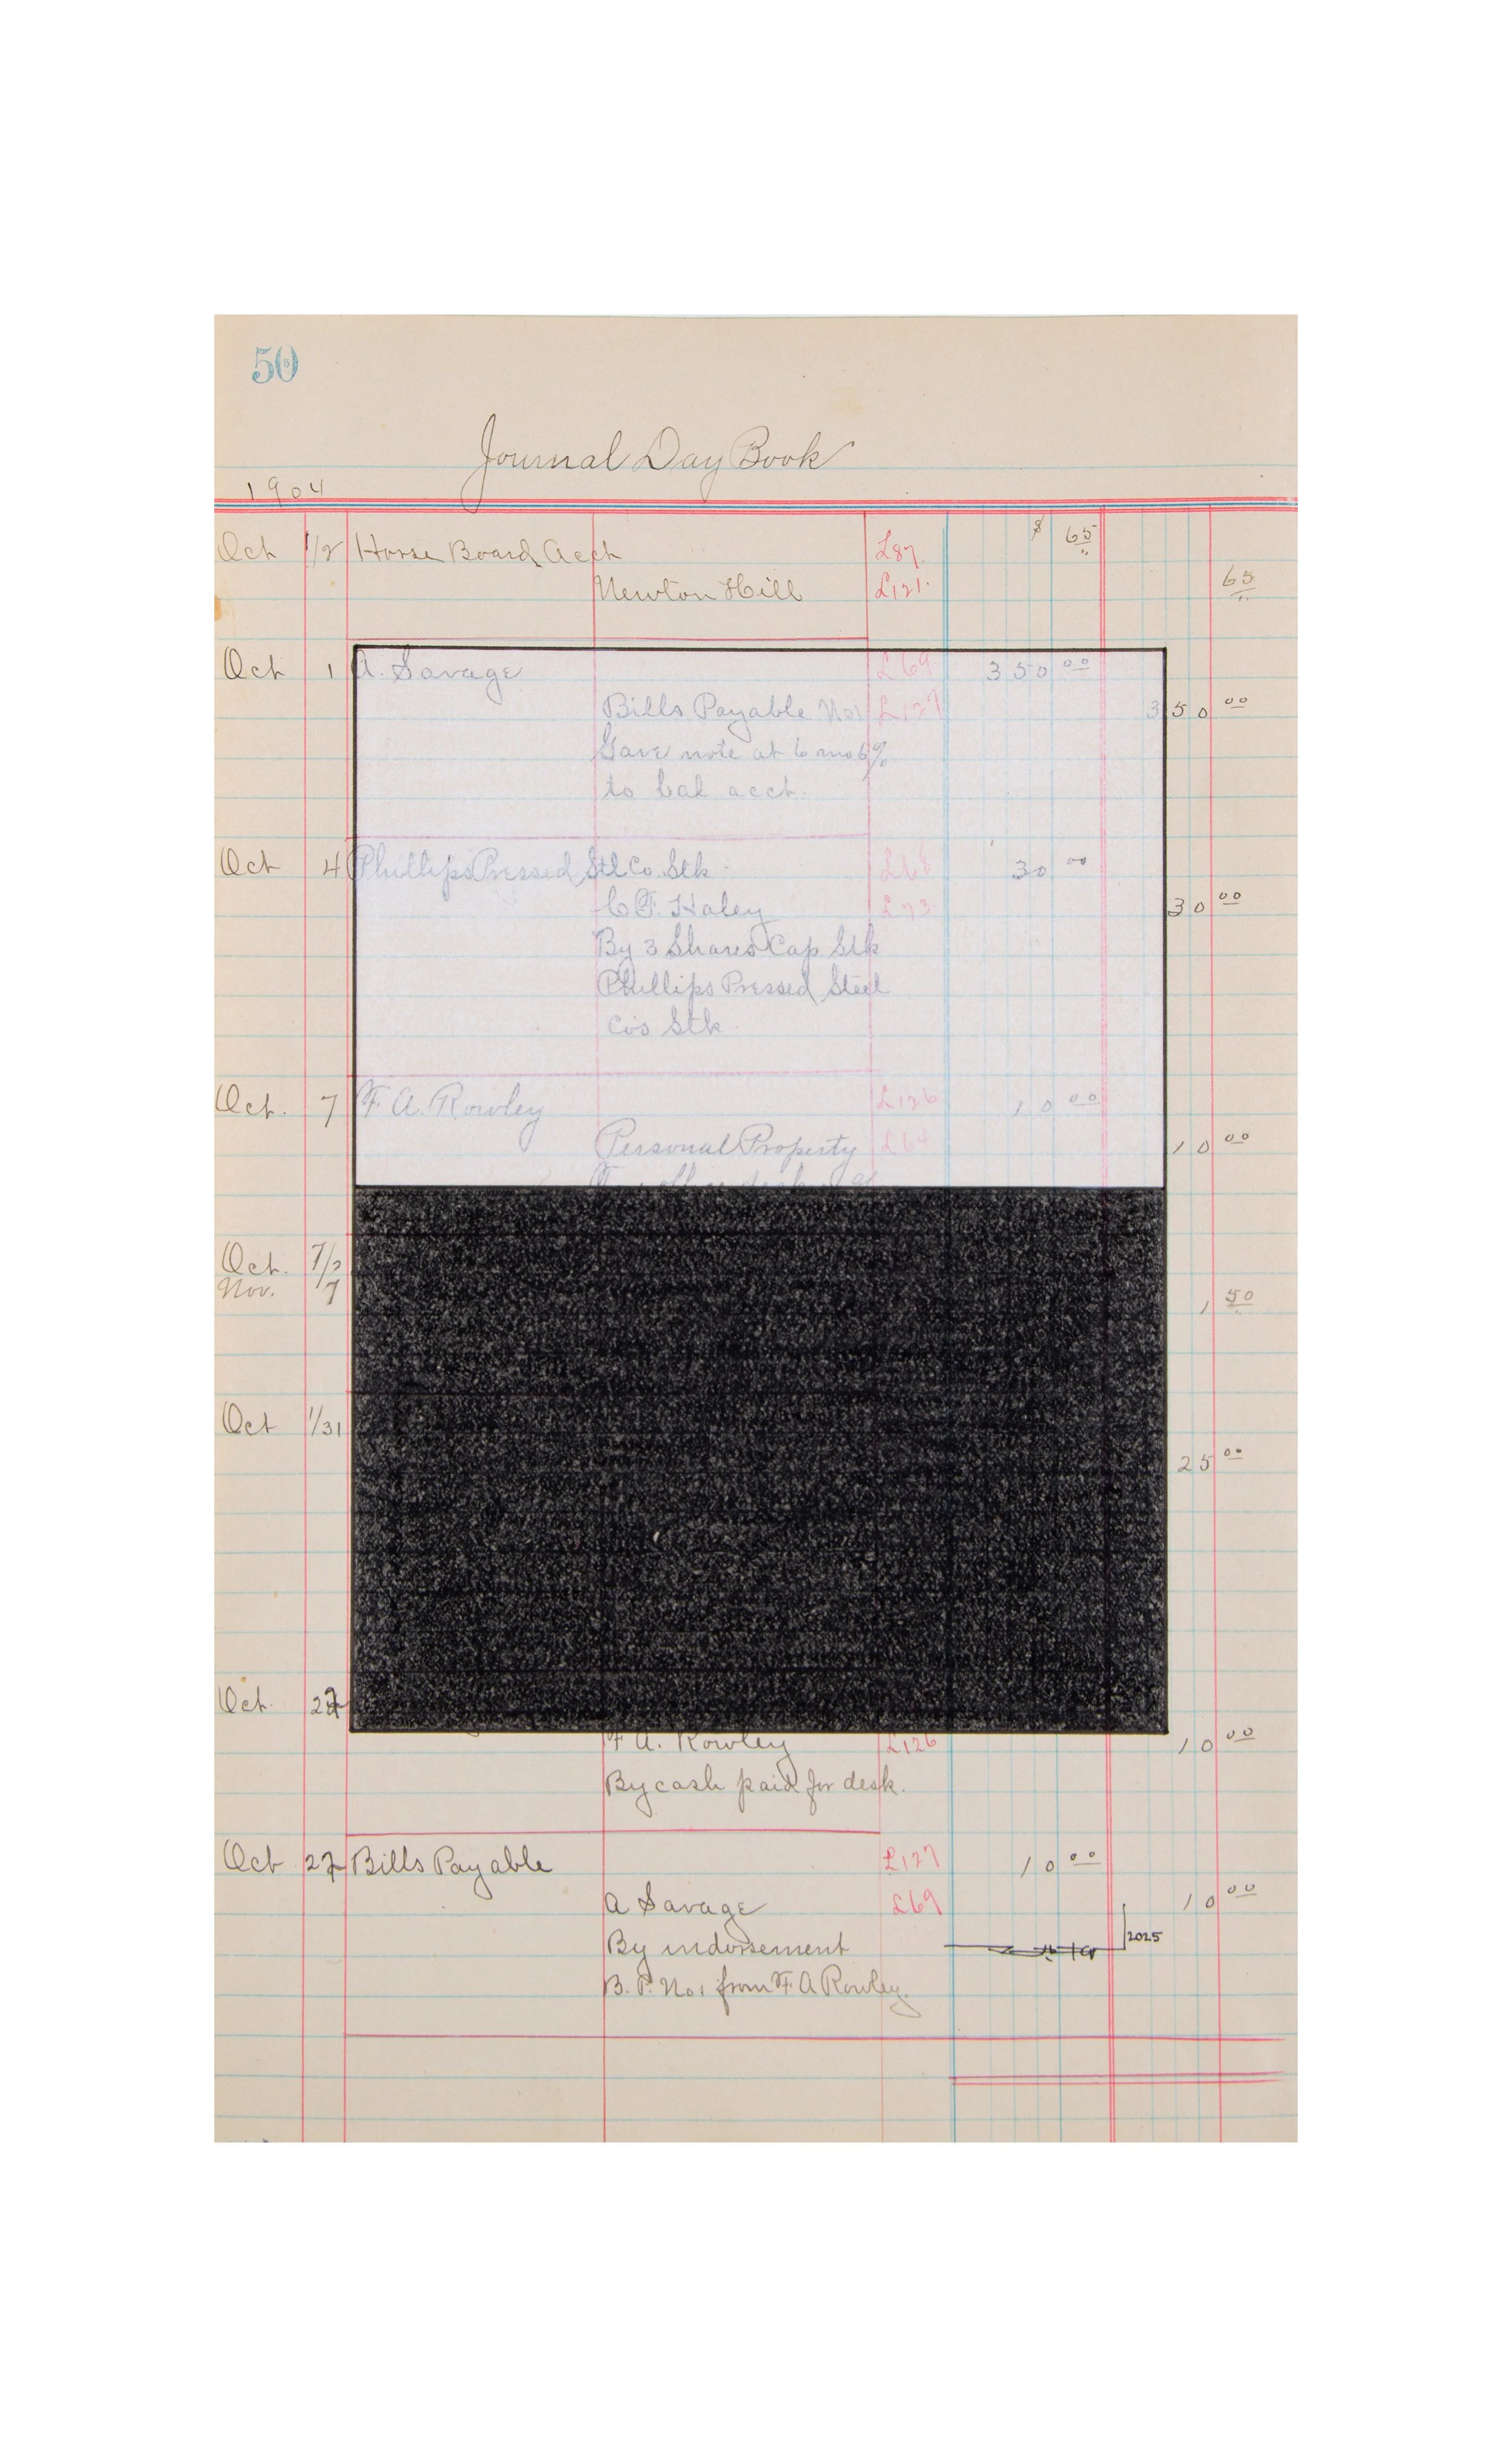 50
Journal Day Book
1904
Oct 1/2 Horse Board Acct L87. $ 65
Newton Hill L121. 65
Oct 1 A. Savage L69 350 00
Bills Payable No1 L127 350 00
Gave note at 6 mo 6%
to bal acct.
Oct 4 Phillips Pressed Stl Co. Stk 30 00
C F. Haley L73 30 00
By 3 Shares Cap Stk
Phillips Pressed Steel
Co's Stk
Oct. 7 F. A. Rowley L126 10 00
Personal Property L64 10 00
office desk
Oct. 7/
Nov. 7 1 50
Oct 1/31
25 00
Oct. 27
F A. Rowley L126 10 00
By cash paid for desk.
Oct 27 Bills Payable L127 10 00
A Savage L69 10 00
By indorsement 2025
B. P. No1 from F A Rowley.